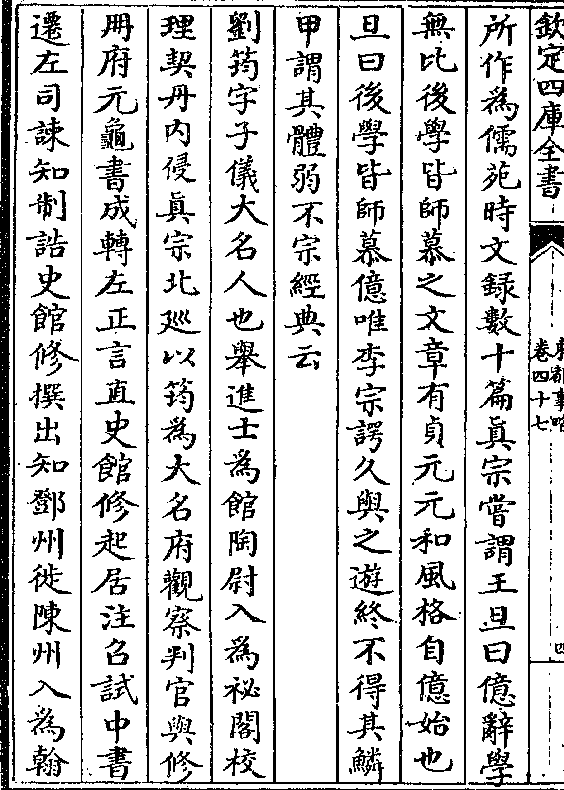 欽定四庫全書
東都事略
卷四十七
四
所作為儒苑時文録數十篇真宗嘗謂王旦曰億辭學
無比後學皆師慕之文章有貞元元和風格自億始也
旦曰後學皆師慕億唯李宗諤久與之遊終不得其鱗
甲謂其體弱不宗經典云
劉筠字子儀大名人也舉進士為館陶尉入為祕閣校
理契丹内侵真宗北廵以筠為大名府觀察判官與修
冊府元龜書成轉左正言直史館修起居注召試中書
遷左司諫知制誥史館修撰出知鄧州徙陳州入為翰